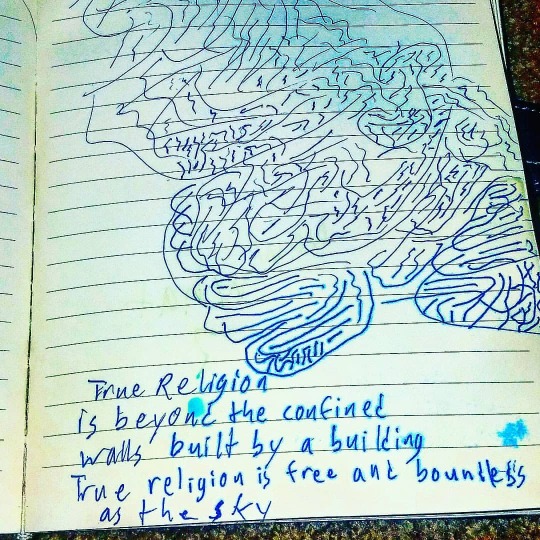 True Religion
is beyond the confined
walls built by a building
True religion is free and boundless
as the sky